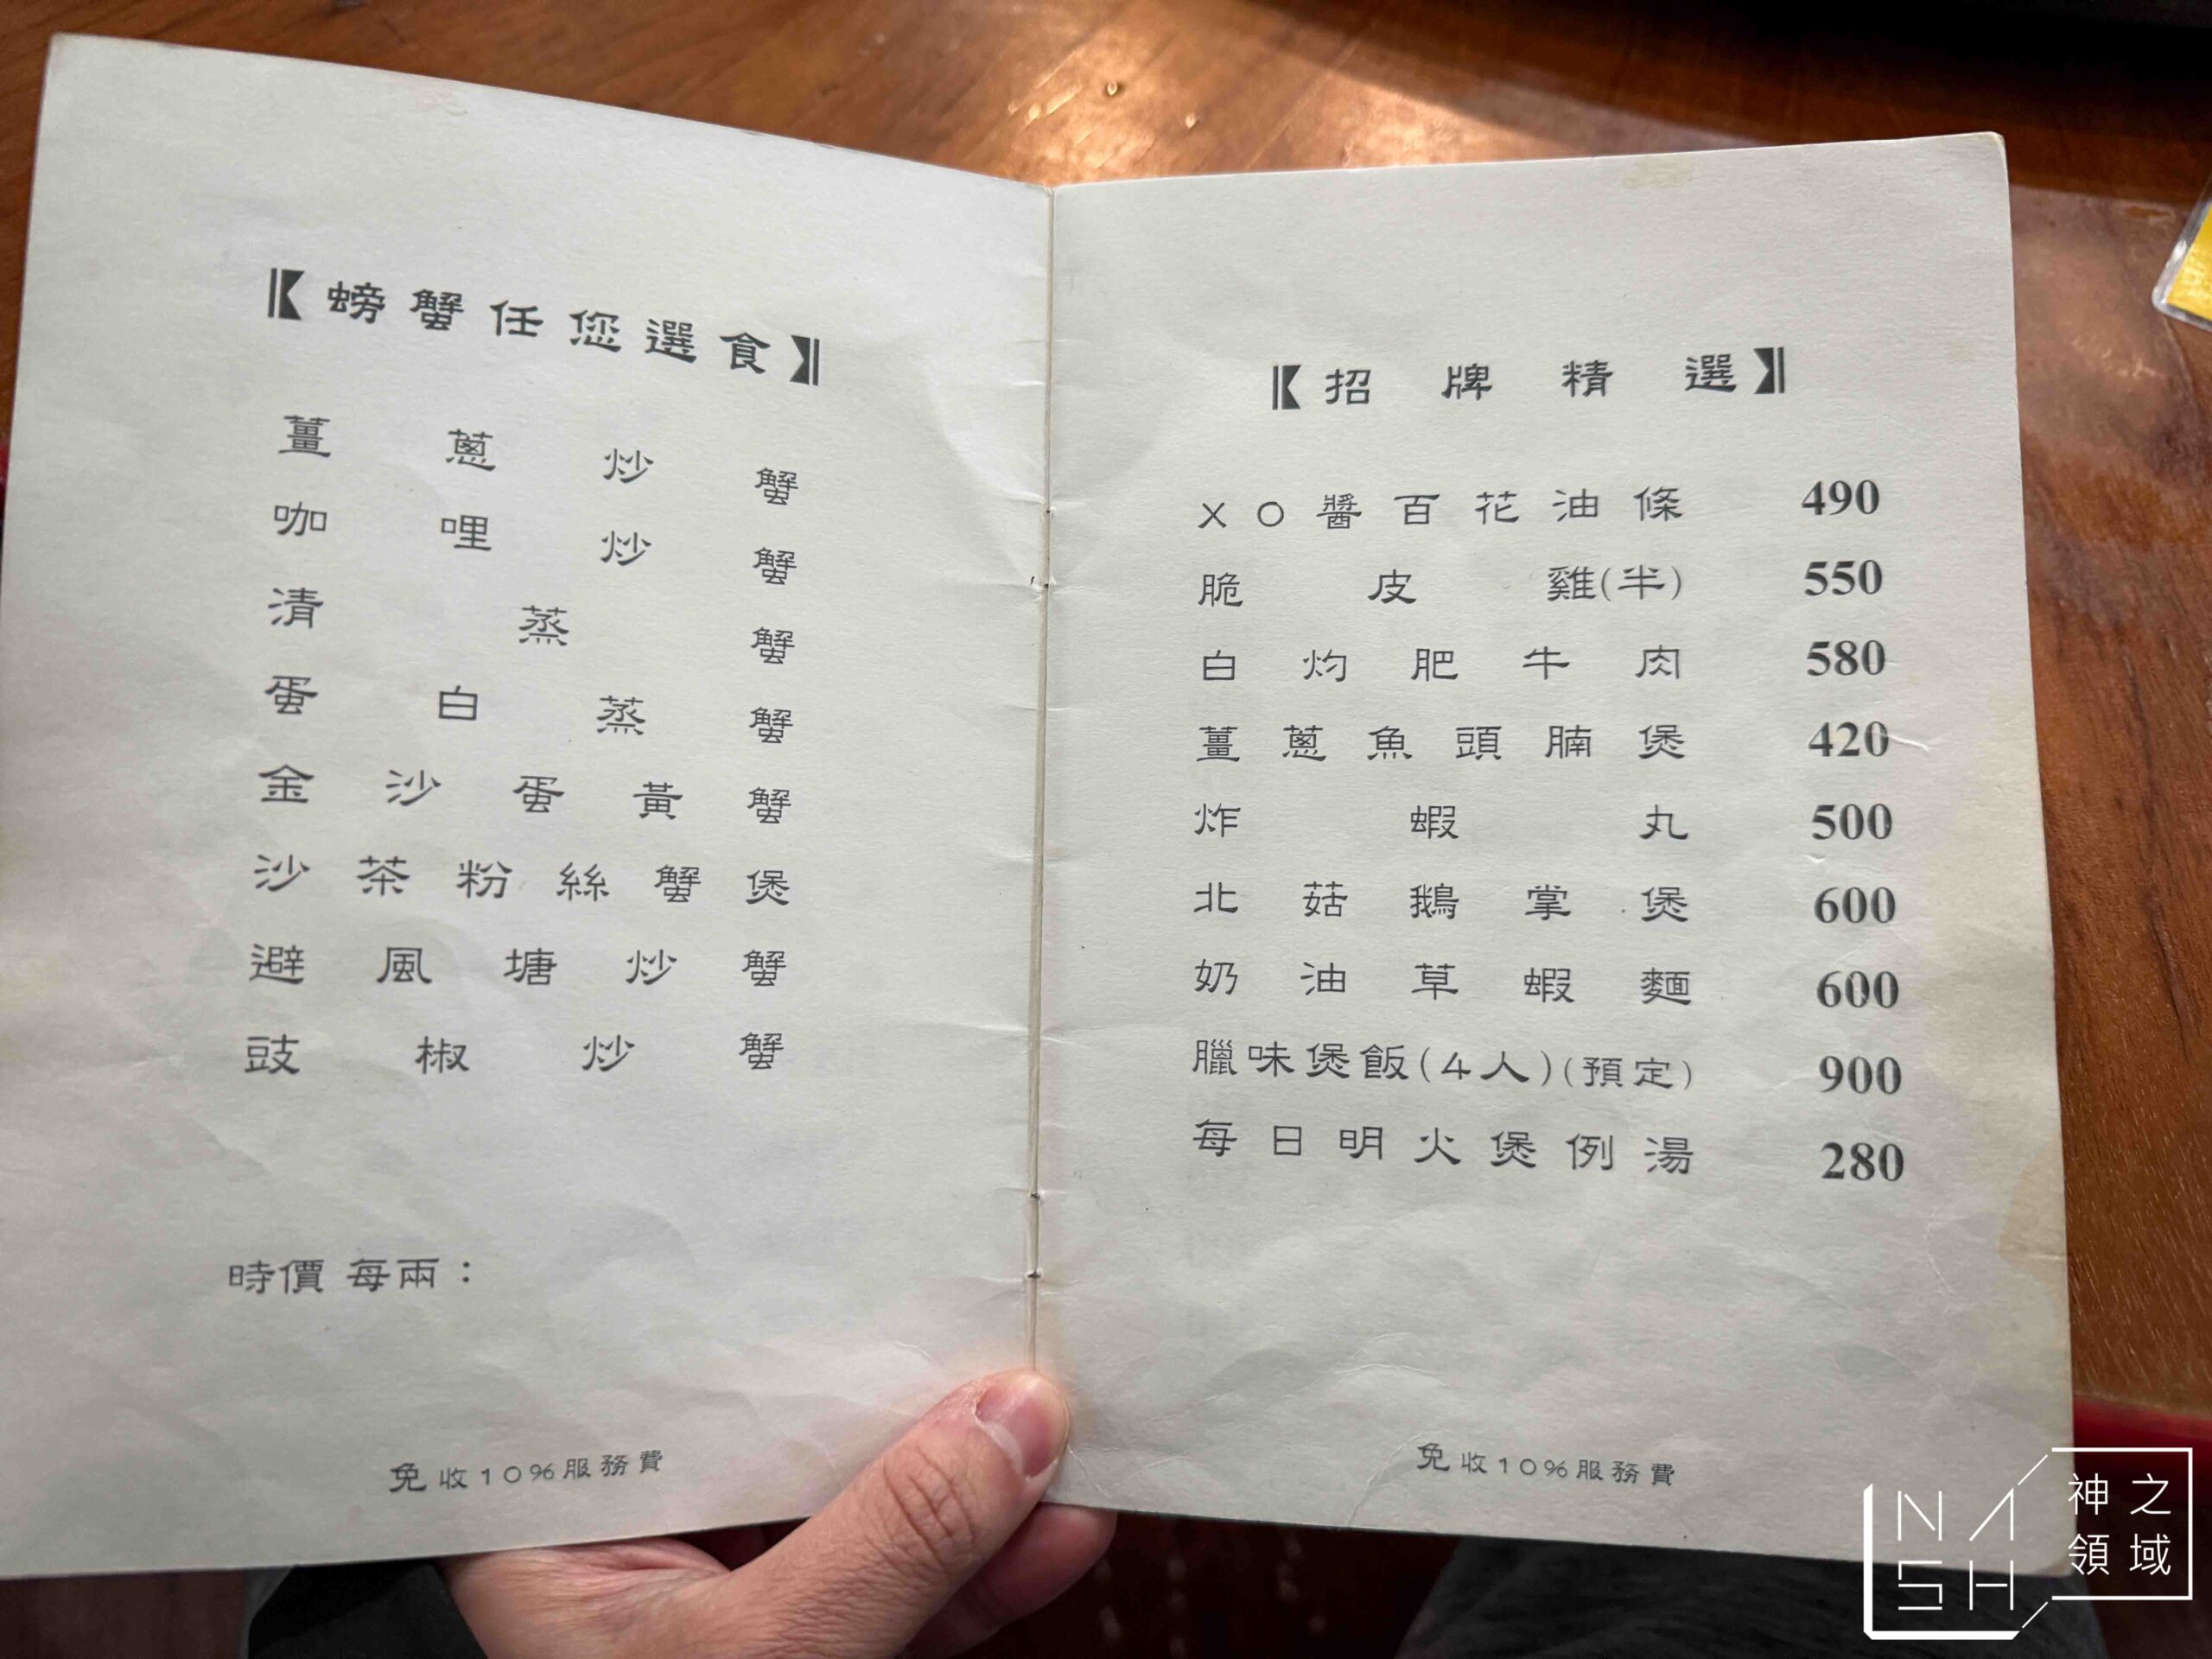 【螃蟹任您選食】
薑蔥炒蟹
咖哩炒蟹
清蒸蟹
蛋白蒸蟹
金沙蛋黃蟹
沙茶粉絲蟹煲
避風塘炒蟹
豉椒炒蟹
時價 每兩：
免收10%服務費
【招牌精選】
XO醬百花油條 490
脆皮雞(半) 550
白灼肥牛肉 580
薑蔥魚頭腩煲 420
炸蝦丸 500
北菇鵝掌煲 600
奶油草蝦麵 600
臘味煲飯(4人)(預定) 900
每日明火煲例湯 280
免收10%服務費
NASH
神之
領域